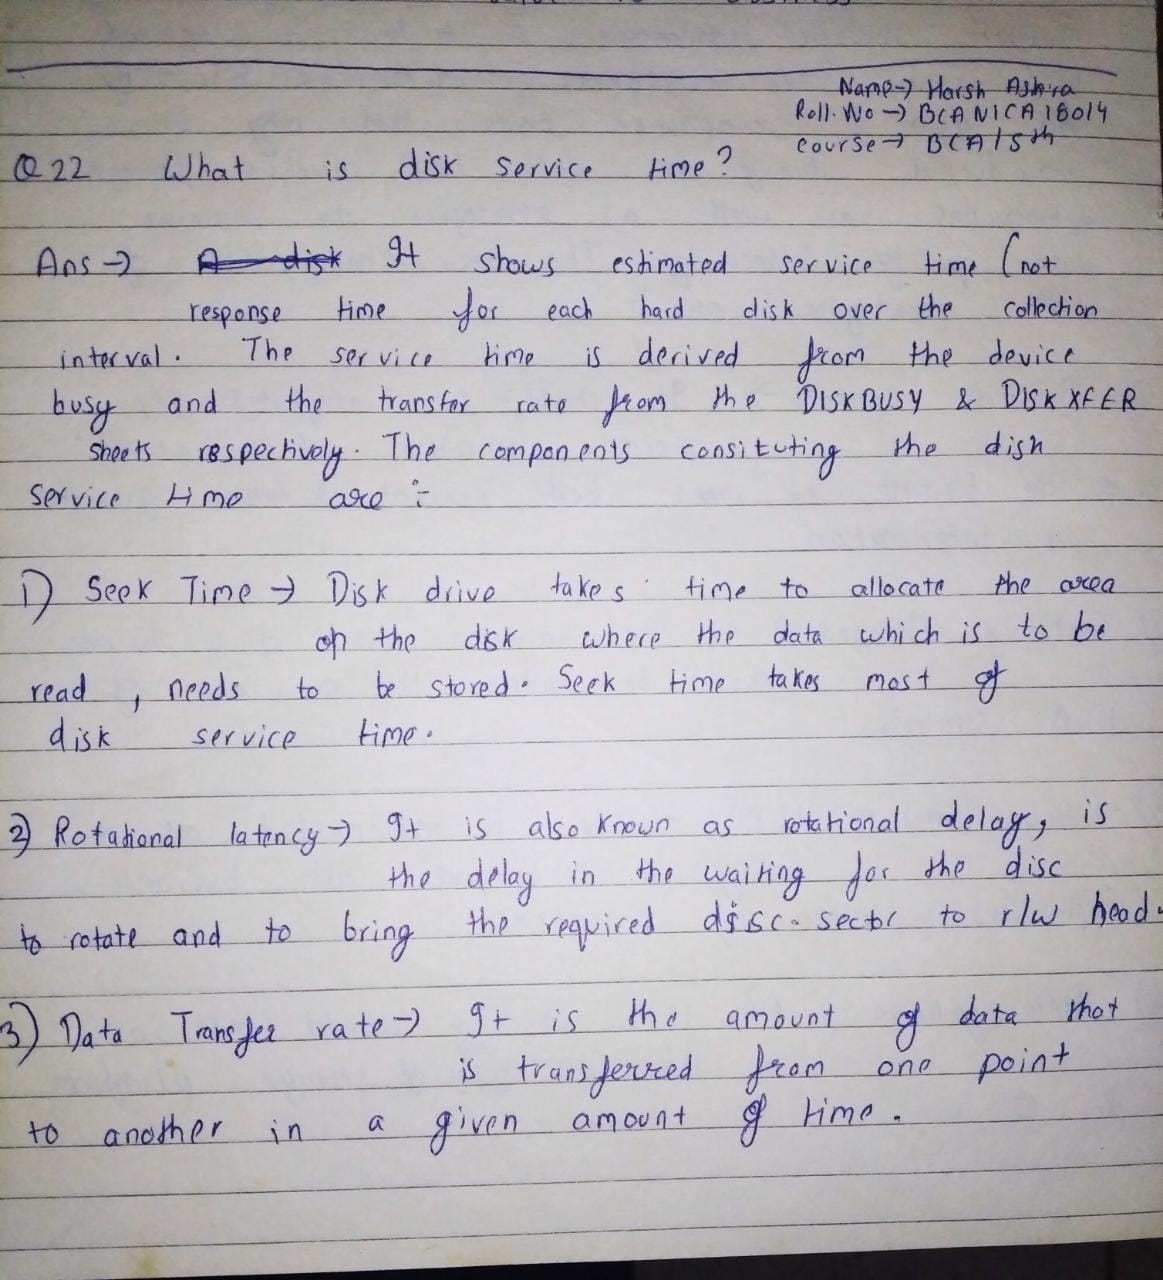 Name→ Harsh
Roll. No → BCANICA18014
Course→ BCA/5th
Q 22 What is disk service time?
Ans → It shows estimated service time (not
response time for each hard disk over the collection
interval. The service time is derived from the device
busy and the transfer rate from the DISKBUSY & DISKXFER
sheets respectively. The components consituting the dish
service time are :-
1) Seek Time → Disk drive takes time to allocate the area
on the disk where the data which is to be
read , needs to be stored. Seek time takes most of
disk service time.
2) Rotational latency → It is also known as rotational delay, is
the delay in the waiting for the disc
to rotate and to bring the required disc. sector to r/w head.
3) Data Transfer rate → It is the amount of data that
is transferred from one point
to another in a given amount of time.